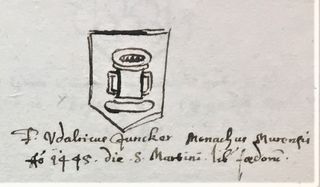 F. Vdalricus Juncker Monachus Murensis
Aō 1445. die S. Martini. lib. fœdorū.